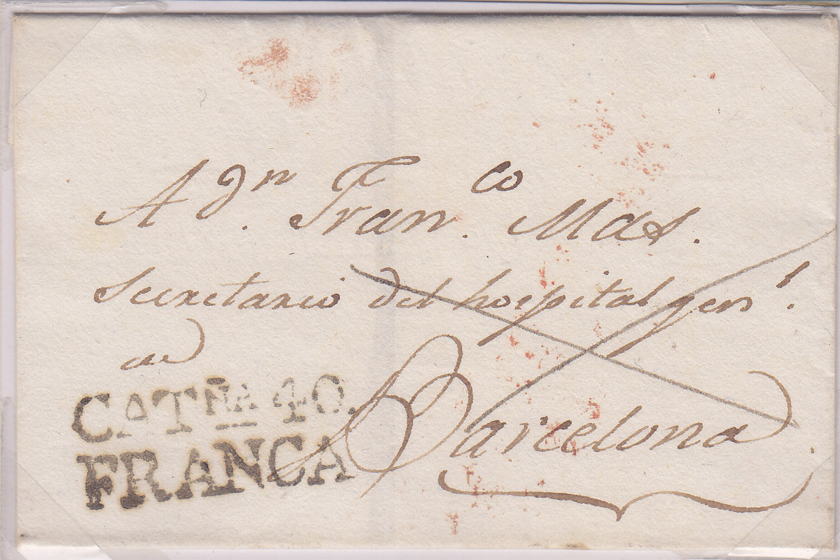 A Dn. Fran.co Mas.
Secretario del hospital genl.
en
Barcelona
CATÑA 40.
FRANCA